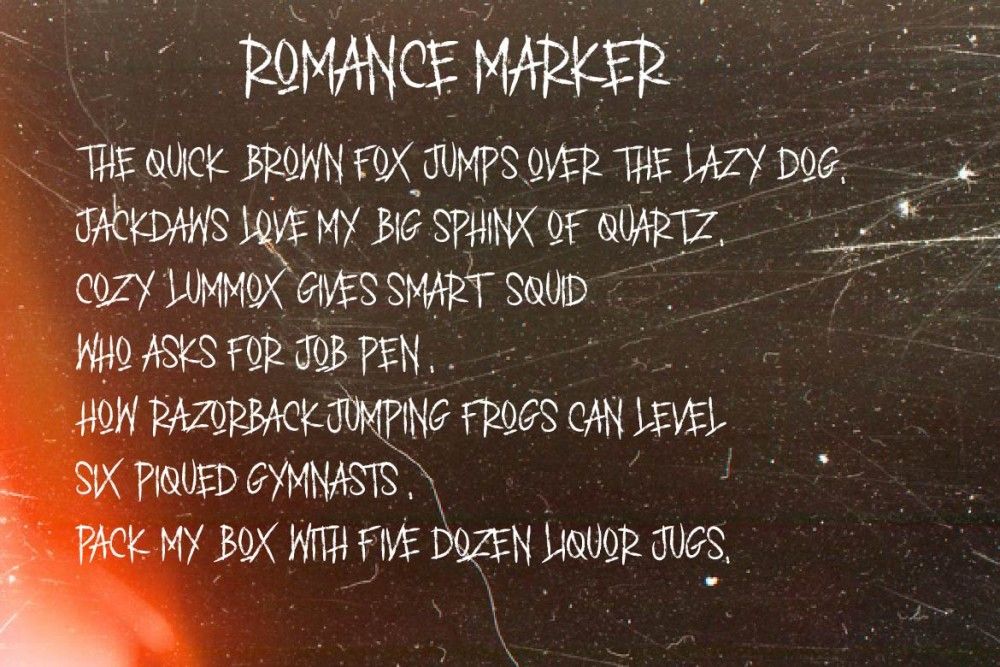 ROMANCE MARKER
THE QUICK BROWN FOX JUMPS OVER THE LAZY DOG.
JACKDAWS LOVE MY BIG SPHINX OF QUARTZ.
COZY LUMMOX GIVES SMART SQUID
WHO ASKS FOR JOB PEN.
HOW RAZORBACK JUMPING FROGS CAN LEVEL
SIX PIQUED GYMNASTS.
PACK MY BOX WITH FIVE DOZEN LIQUOR JUGS.